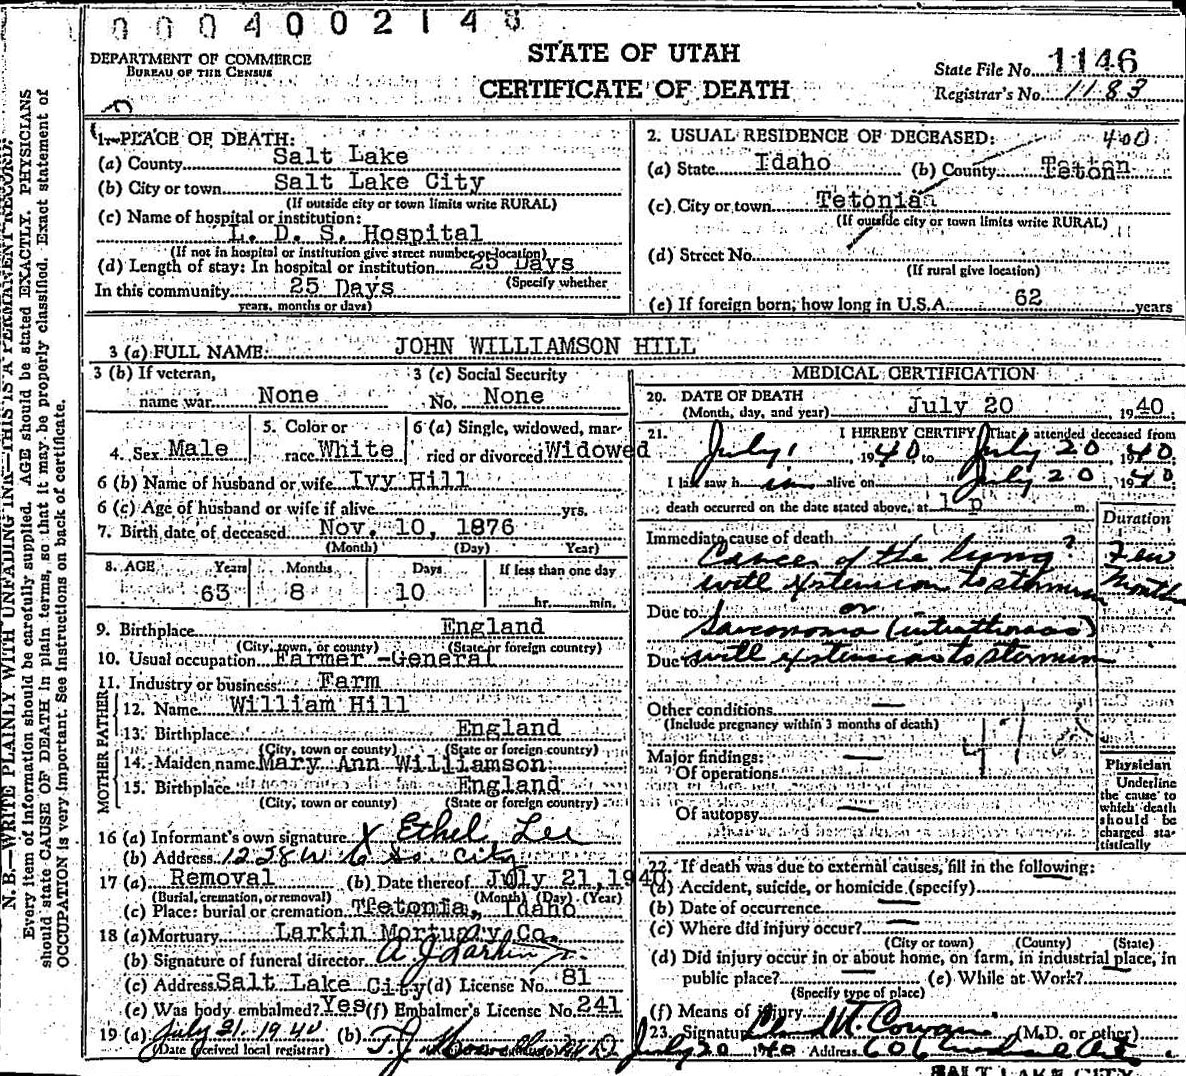 0004002148
DEPARTMENT OF COMMERCE
BUREAU OF THE CENSUS
STATE OF UTAH
CERTIFICATE OF DEATH
State File No. 1146
Registrar's No. 1183
N. B.—WRITE PLAINLY WITH UNFADING INK—THIS IS A PERMANENT RECORD.
Every item of information should be carefully supplied. AGE should be stated EXACTLY. PHYSICIANS
should state CAUSE OF DEATH in plain terms, so that it may be properly classified. Exact statement of
OCCUPATION is very important. See instructions on back of certificate.
1. PLACE OF DEATH:
(a) County Salt Lake
(b) City or town Salt Lake City
(If outside city or town limits write RURAL)
(c) Name of hospital or institution:
L. D. S. Hospital
(If not in hospital or institution give street number or location)
(d) Length of stay: In hospital or institution 25 Days
(Specify whether
In this community 25 Days
years, months or days)
2. USUAL RESIDENCE OF DECEASED: 400
(a) State Idaho (b) County Teton
(c) City or town Tetonia
(If outside city or town limits write RURAL)
(d) Street No.
(If rural give location)
(e) If foreign born, how long in U.S.A. 62 years
3 (a) FULL NAME JOHN WILLIAMSON HILL
3 (b) If veteran, name war None
3 (c) Social Security No. None
4. Sex Male
5. Color or race White
6 (a) Single, widowed, married or divorced Widowed
6 (b) Name of husband or wife Ivy Hill
6 (c) Age of husband or wife if alive yrs.
7. Birth date of deceased Nov. 10, 1876
(Month) (Day) Year)
8. AGE Years Months Days If less than one day
63 8 10 hr. min.
9. Birthplace England
(City, town, or county) (State or foreign country)
10. Usual occupation Farmer -General
11. Industry or business Farm
FATHER
12. Name William Hill
13. Birthplace England
(City, town or county) (State or foreign country)
MOTHER
14. Maiden name Mary Ann Williamson
15. Birthplace England
(City, town or county) (State or foreign country)
16 (a) Informant's own signature X Ethel Lee
(b) Address 1258 W 6 So. City
17 (a) Removal (b) Date thereof July 21, 1940
(Burial, cremation, or removal) (Month) (Day) (Year)
(c) Place: burial or cremation Tetonia, Idaho
18 (a) Mortuary Larkin Mortuary Co.
(b) Signature of funeral director A. J. Larkin
(c) Address Salt Lake City (d) License No. 81
(e) Was body embalmed? Yes (f) Embalmer's License No. 241
19 (a) July 31. 1940 (b) T. J.
(Date received local registrar)
MEDICAL CERTIFICATION
20. DATE OF DEATH
(Month, day, and year) July 20, 1940
21. I HEREBY CERTIFY, That I attended deceased from
July 1 1940 to July 20 1940
I last saw him alive on July 20, 1940
death occurred on the date stated above, at 1 p m.
Duration
Immediate cause of death
Cancer of the lung? Few
with extension to sternum Months
or
Due to Sarcomoma (intrathoracic)
Due to with extension to sternum
Other conditions —
(Include pregnancy within 3 months of death)
47
Major findings: —
Of operations
Of autopsy —
Physician
Underline
the cause to
which death
should be
charged sta-
tistically
22. If death was due to external causes, fill in the following:
(a) Accident, suicide, or homicide (specify)
(b) Date of occurrence —
(c) Where did injury occur? —
(City or town) (County) (State)
(d) Did injury occur in or about home, on farm, in industrial place, in
public place? — (e) While at Work?
(Specify type of place)
(f) Means of injury
23. Signature Cowan (M.D. or other)
July 20 1940 Address 606
SALT LAKE CITY